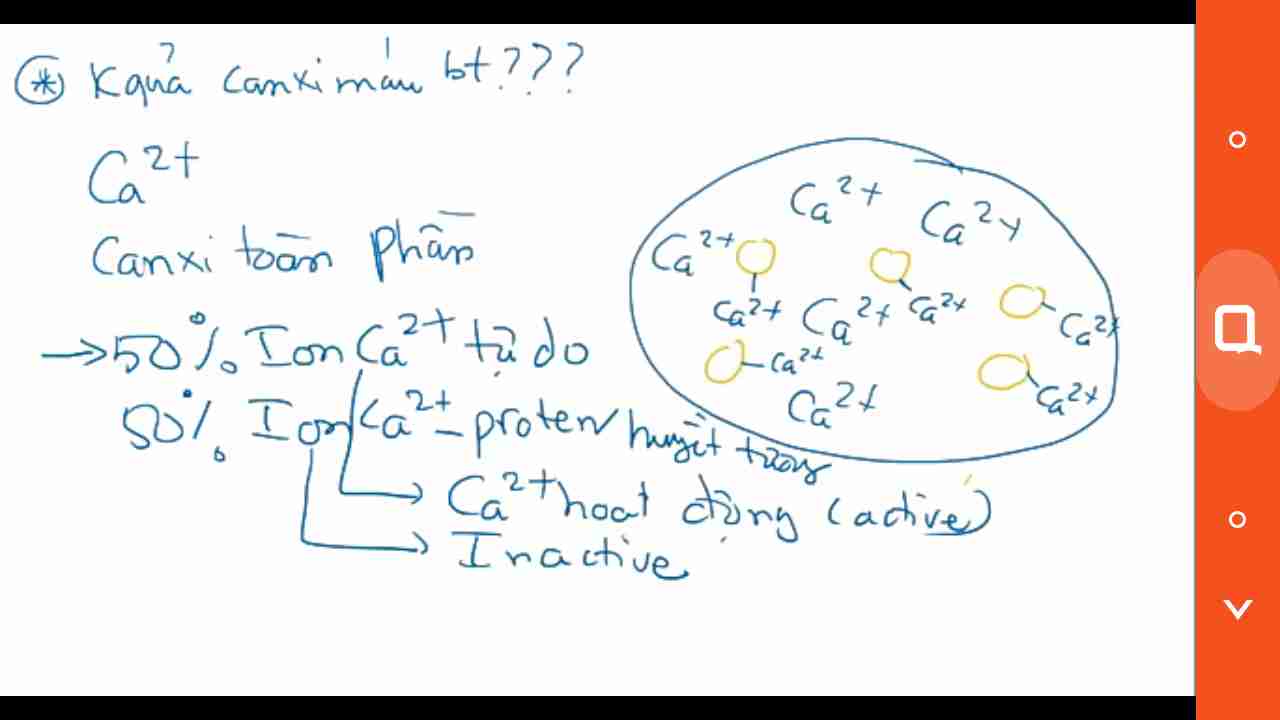 * Kquả canxi máu bt???
Ca2+
Canxi toàn phần
→ 50% Ion Ca2+ tự do
50% Ion Ca2+ – proten huyết tương
Ca2+ hoạt động (active)
Inactive
Ca2+
Ca2+
Ca2+
Ca2+
Ca2+
Ca2+
Ca2+
Ca2+
Ca2+
Ca2+